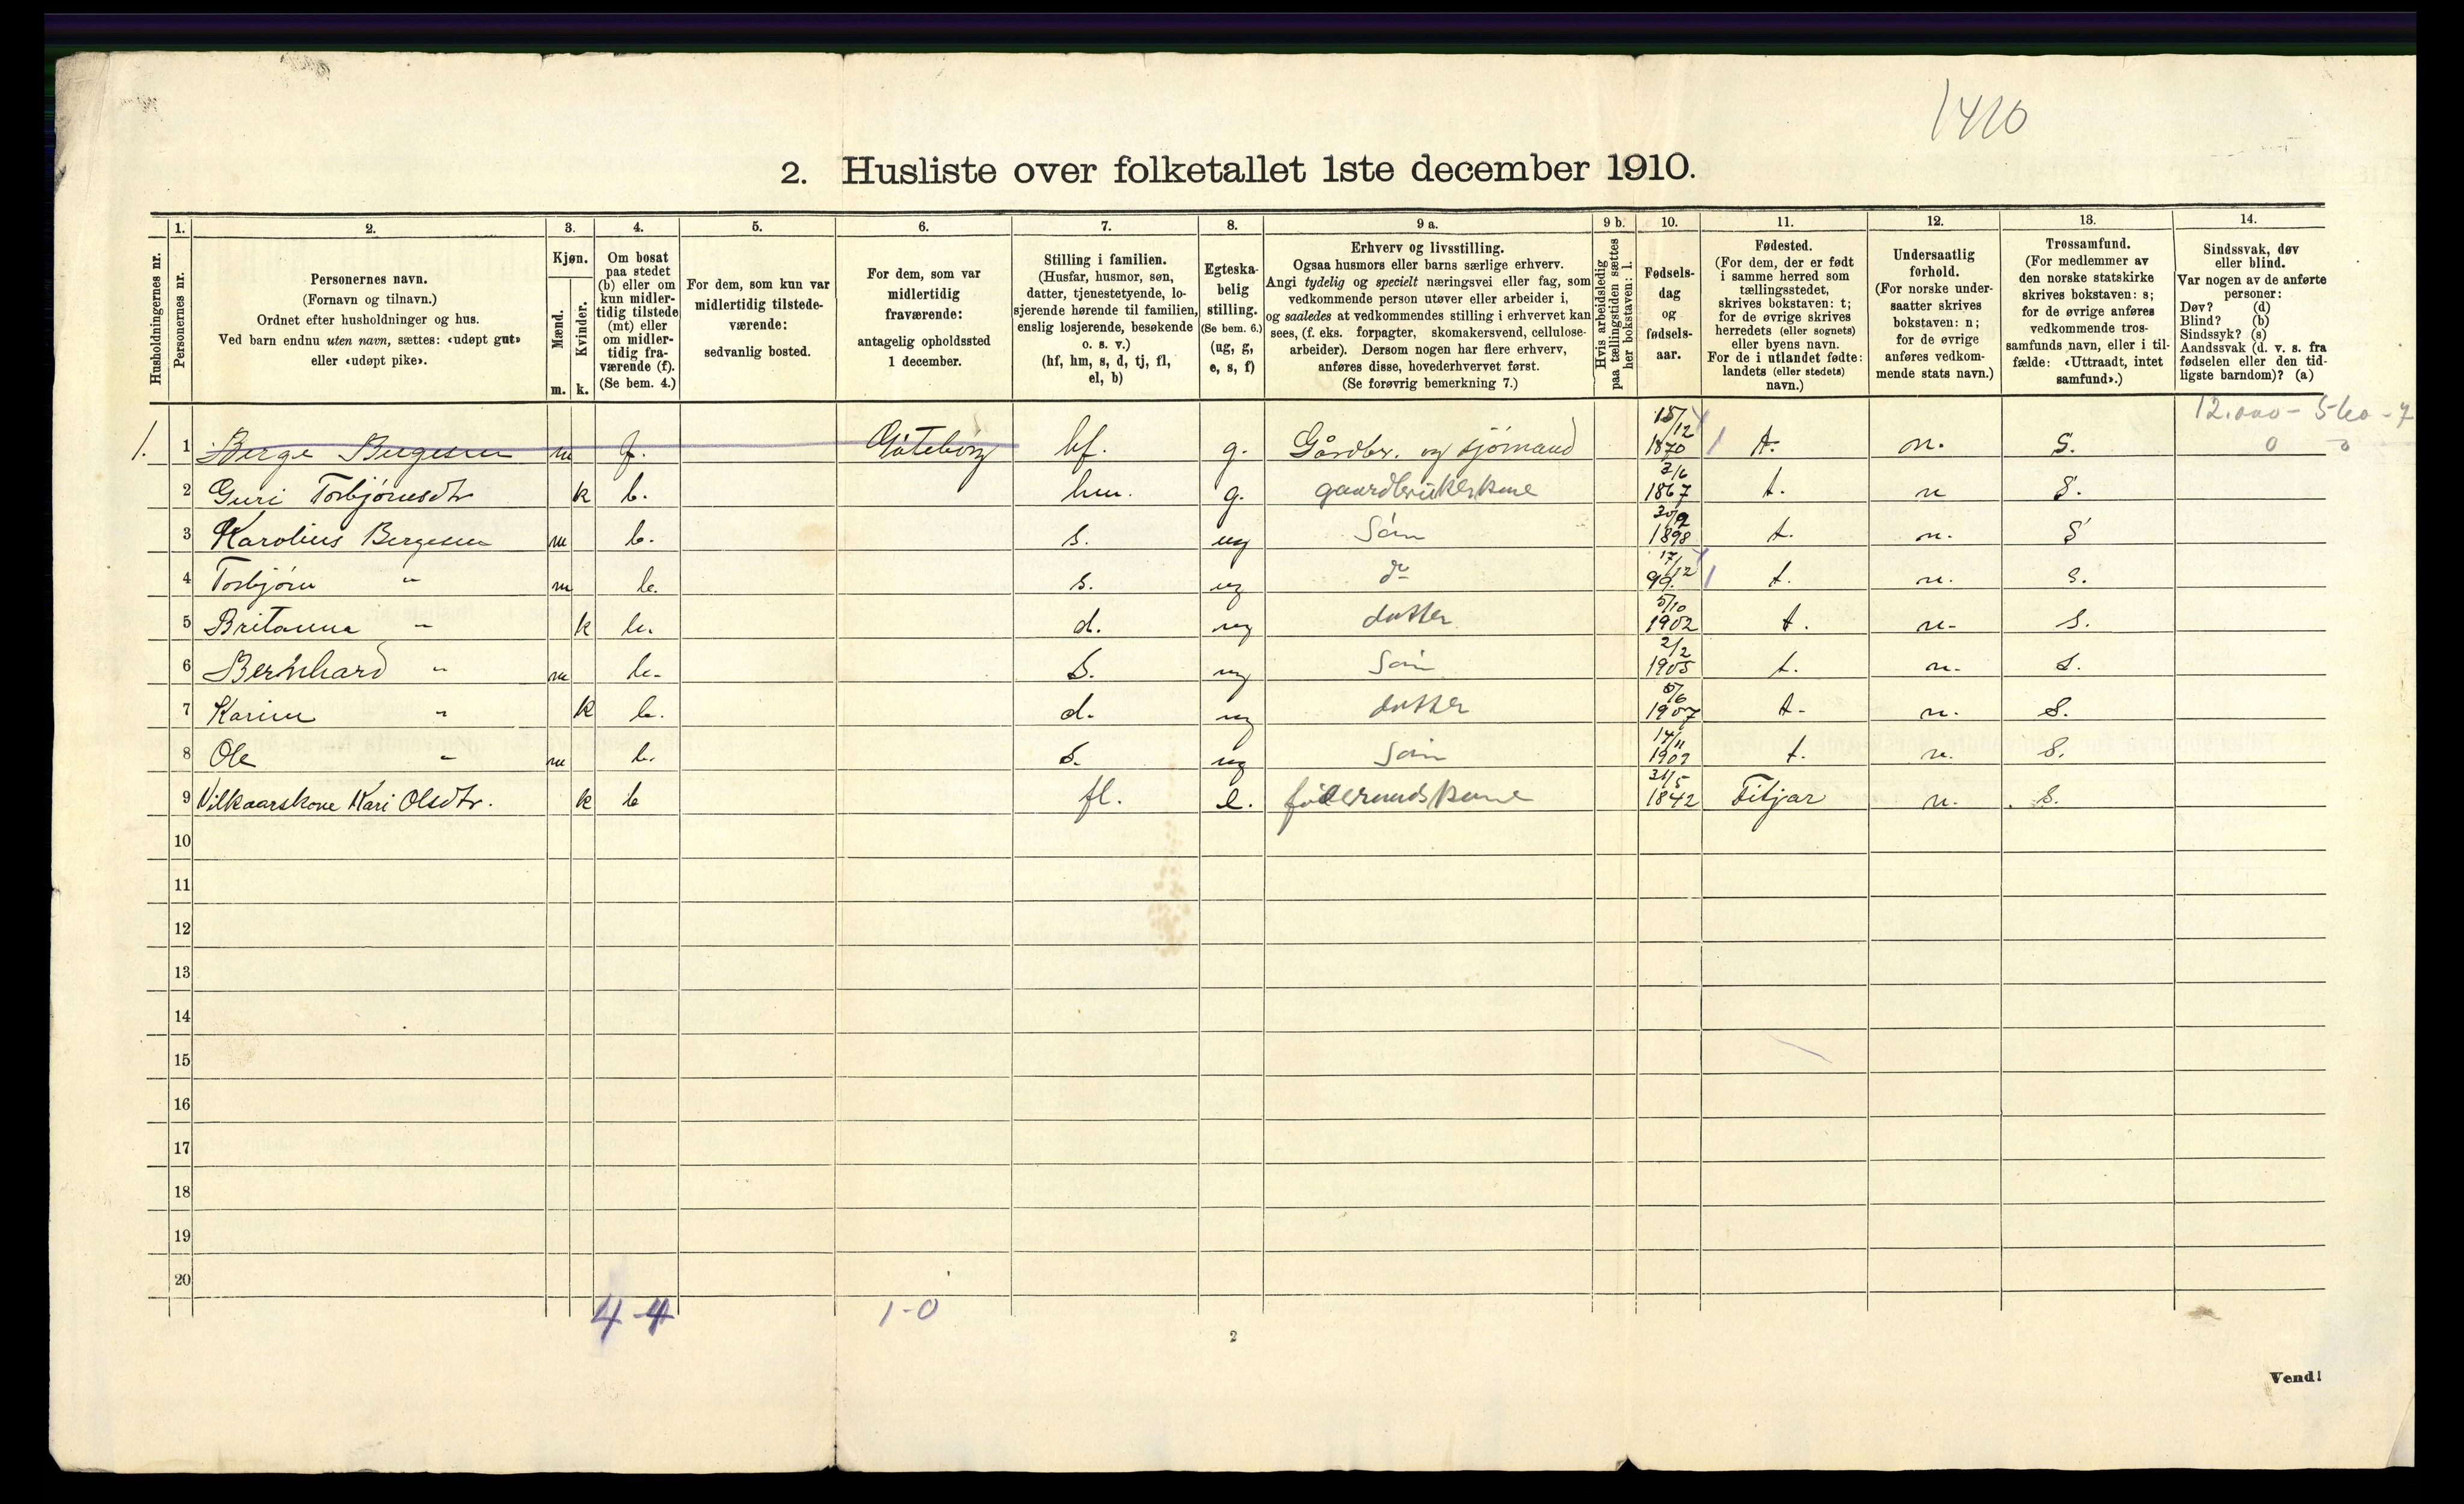 1410
2. Husliste over folketallet 1ste december 1910.
Husholdningernes nr.
1.
Personernes nr.
2.
Personernes navn.
(Fornavn og tilnavn.)
Ordnet efter husholdninger og hus.
Ved barn endnu uten navn, sættes: «udøpt gut»
eller «udøpt pike».
3.
Kjøn.
Mænd.
Kvinder.
m. k.
4.
Om bosat
paa stedet
(b) eller om
kun midler-
tidig tilstede
(mt) eller
om midler-
tidig fra-
værende (f).
(Se bem. 4.)
5.
For dem, som kun var
midlertidig tilstede-
værende:
sedvanlig bosted.
6.
For dem, som var
midlertidig
fraværende:
antagelig opholdssted
1 december.
7.
Stilling i familien.
(Husfar, husmor, søn,
datter, tjenestetyende, lo-
sjerende hørende til familien,
enslig losjerende, besøkende
o. s. v.)
(hf, hm, s, d, tj, fl,
el, b)
8.
Egteska-
belig
stilling.
(Se bem. 6.)
(ug, g,
e, s, f)
9 a.
Erhverv og livsstilling.
Ogsaa husmors eller barns særlige erhverv.
Angi tydelig og specielt næringsvei eller fag, som
vedkommende person utøver eller arbeider i,
og saaledes at vedkommendes stilling i erhvervet kan
sees, (f. eks. forpagter, skomakersvend, cellulose-
arbeider). Dersom nogen har flere erhverv,
anføres disse, hovederhvervet først.
(Se forøvrig bemerkning 7.)
9 b.
Hvis arbeidsledig
paa tællingstiden sættes
her bokstaven: l.
10.
Fødsels-
dag
og
fødsels-
aar.
11.
Fødested.
(For dem, der er født
i samme herred som
tællingsstedet,
skrives bokstaven: t;
for de øvrige skrives
herredets (eller sognets)
eller byens navn.
For de i utlandet fødte:
landets (eller stedets)
navn.)
12.
Undersaatlig
forhold.
(For norske under-
saatter skrives
bokstaven: n;
for de øvrige
anføres vedkom-
mende stats navn.)
13.
Trossamfund.
(For medlemmer av
den norske statskirke
skrives bokstaven: s;
for de øvrige anføres
vedkommende tros-
samfunds navn, eller i til-
fælde: «Uttraadt, intet
samfund».)
14.
Sindssvak, døv
eller blind.
Var nogen av de anførte
personer:
Døv? (d)
Blind? (b)
Sindssyk? (s)
Aandssvak (d. v. s. fra
fødselen eller den tid-
ligste barndom)? (a)
12.000 -
0 0
1. 1 Berge Bergesen m f. Göteborg hf. g. Gårdbr. og sjömand 15/12 1870 t. n. S.
2 Guri Torbjörnsdtr k b. hm. g. gaardbrukerkone 3/6 1867 t. n S.
3 Karolius Bergesen m b. s. ug Sön 30/9 1898 t. n. S
4 Torbjörn " m b. s. ug do 17/12 99. t. n. s.
5 Britanna " k b. d. ug datter 5/10 1902 t. n. S.
6 Bernhard " m b. S. ug Sön 2/2 1905 t. n. S.
7 Karine " k b. d. ug datter 5/6 1907 t. n. S.
8 Ole " m b. S. ug Sön 14/11 1909 t. n. S.
9 Vilkaarskone Kari Olsdtr. k b fl. e. föderaadskone 31/5 1842 Fitjar n. S.
10
11
12
13
14
15
16
17
18
19
20
4-4 1-0
2
Vend!